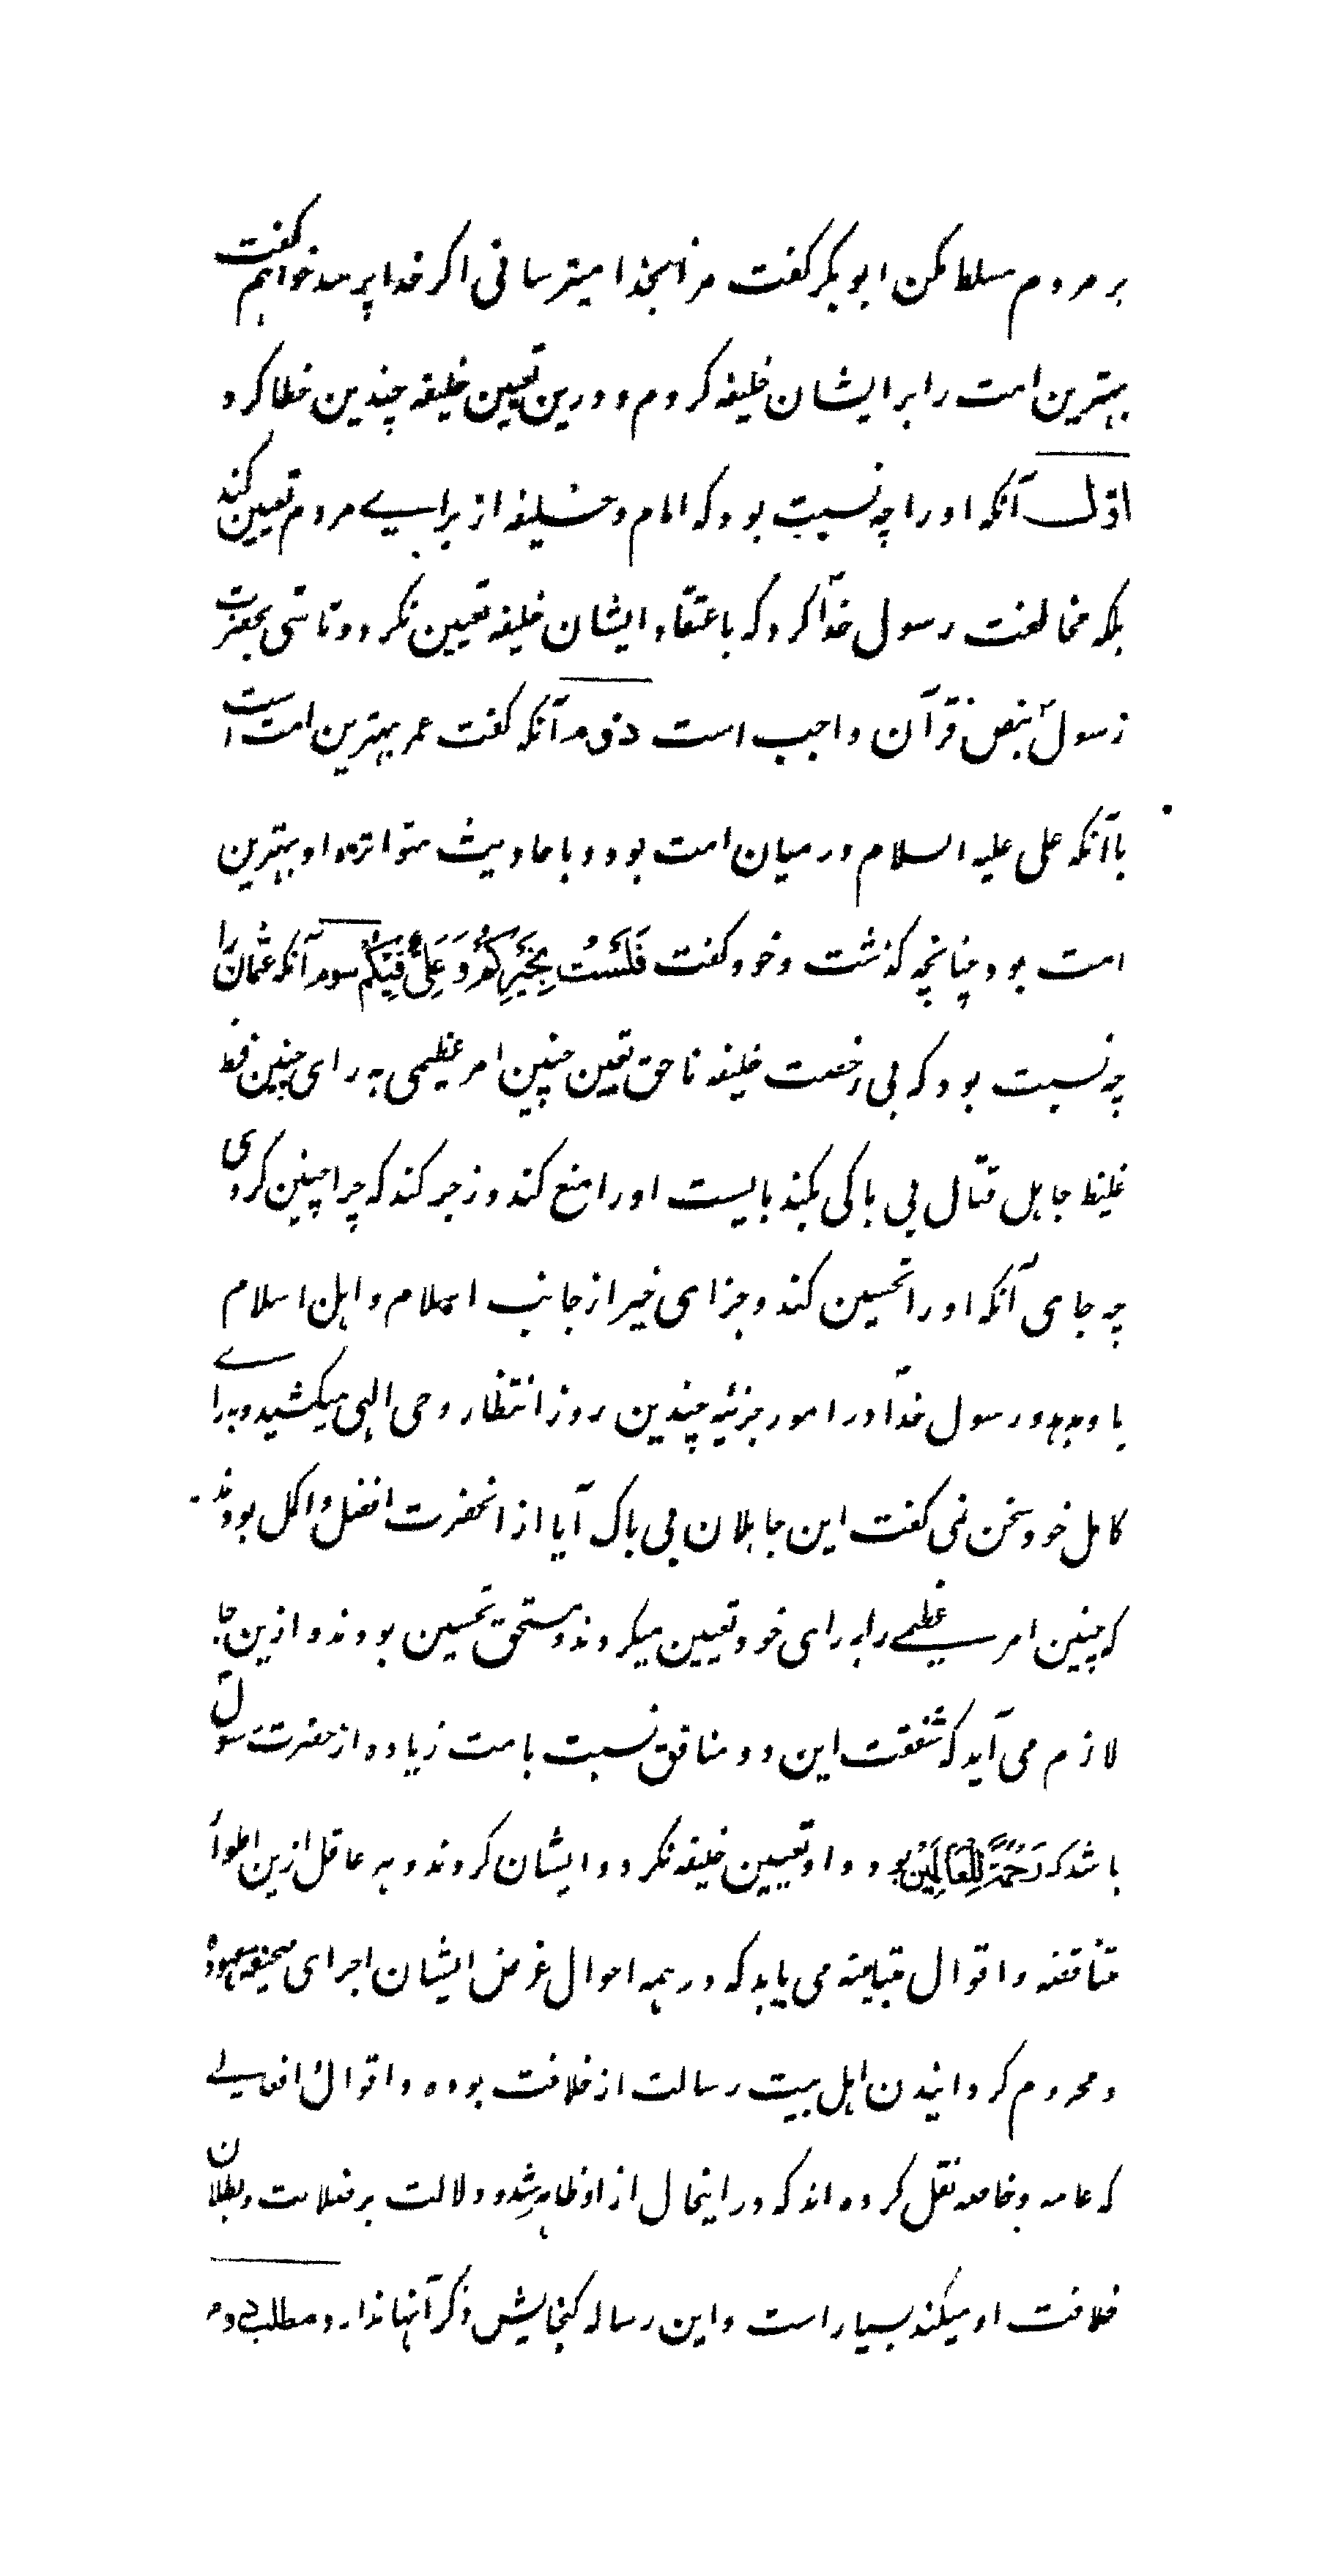 بر مردم مسلط مکن ابو بکر گفت مرا بخدا میترسانی اگر خدا پرسد خواهم گفت
بهترین امت را بر ایشان خلیفه کردم و درین تعیین خلیفه چندین خطا کرد
اول آنکه او را چه نسبت بود که امام و خلیفه از برای مردم تعیین کند
بلکه مخالفت رسول خدا کرد که باعتقاد ایشان خلیفه تعیین نکرد و تاسی بحضرت
رسول بنص قرآن واجب است دوم آنکه گفت عمر بهترین امت است
با آنکه علی علیه السلام در میان امت بود و باحادیث متواتره او بهترین
امت بود چنانچه گذشت و خود گفت فَلَسْتُ بِخَیْرِکُمْ وَ عَلِیٌّ فِیْکُمْ سوم آنکه عثمان را
چه نسبت بود که بی رخصت خلیفه ناحق تعیین چنین امر عظیمی به رای چنین فظ
غلیظ جاهل قتال بی باکی بکند بایست او را منع کند و زجر کند که چرا چنین کردی
چه جای آنکه او را تحسین کند و جزای خیر از جانب اسلام و اهل اسلام
باو بدهد و رسول خدا در امور جزئیه چندین روز انتظار وحی الهی میکشید و برای
کامل خود سخن نمی گفت این جاهلان بی باک آیا از آنحضرت افضل و اکمل بودند
که چنین امر عظیمی را برای خود تعیین میکردند و مستحق تحسین بودند و ازین جا
لازم می آید که شفقت این دو منافق نسبت بامت زیاده از حضرت رسول
باشد که رَحْمَةً لِّلْعَالَمِیْنَ بود و او تعیین خلیفه نکرد و ایشان کردند و هر عاقل ازین اطوار
متناقضه و اقوال متباینه می یابد که در همه احوال غرض ایشان اجرای صحیفه معهوده
و محروم گردانیدن اهل بیت رسالت از خلافت بوده و اقوال و افعالی
که عامه و خاصه نقل کرده اند که در اینحال از او ظاهر شد و دلالت بر ضلالت و بطلان
خلافت او میکند بسیار است و این رساله گنجایش ذکر آنها ندارد مطلب دوم